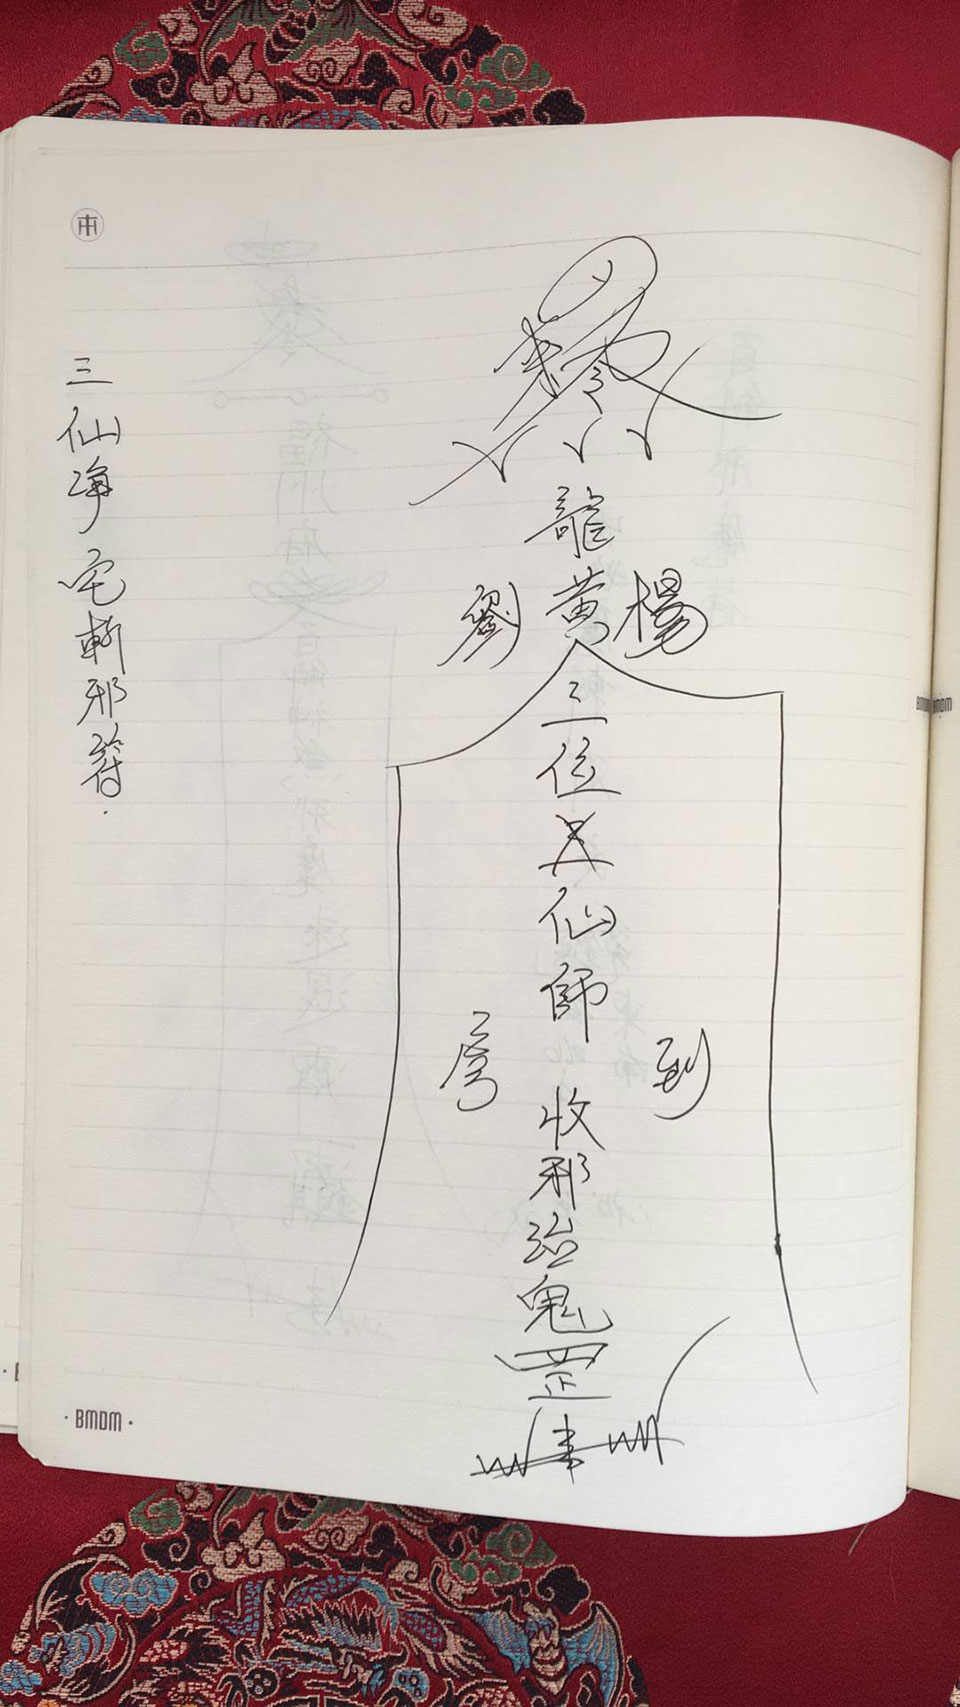 三仙淨宅斬邪符.
敕令
龍
劉黃楊
三位大仙師
到
收邪治鬼罡
BMDM
· BMDM ·